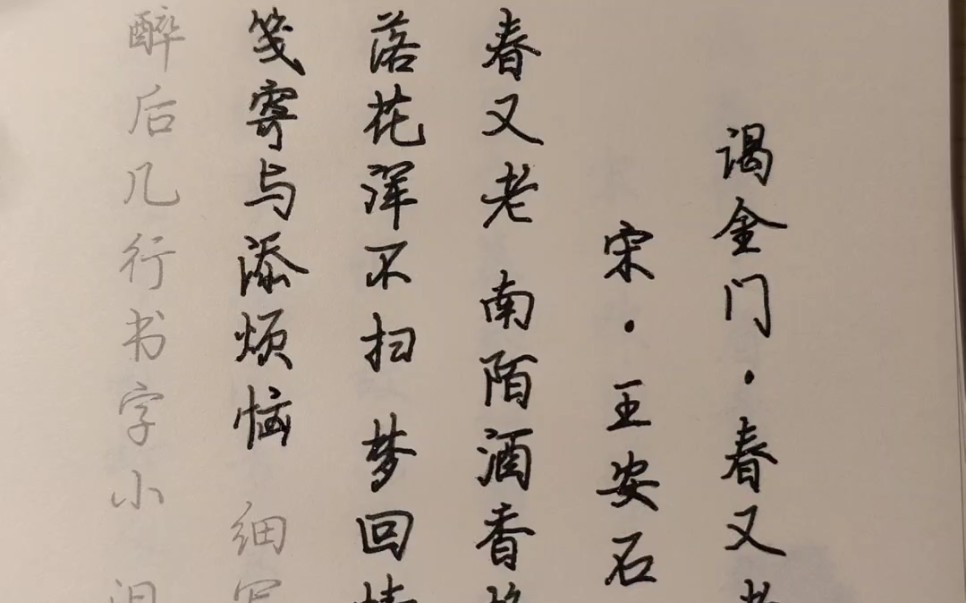 谒金门·春又
宋·王安石
春又老 南陌酒香
落花浑不扫 梦回
笺寄与添烦恼 细
醉后几行书字小